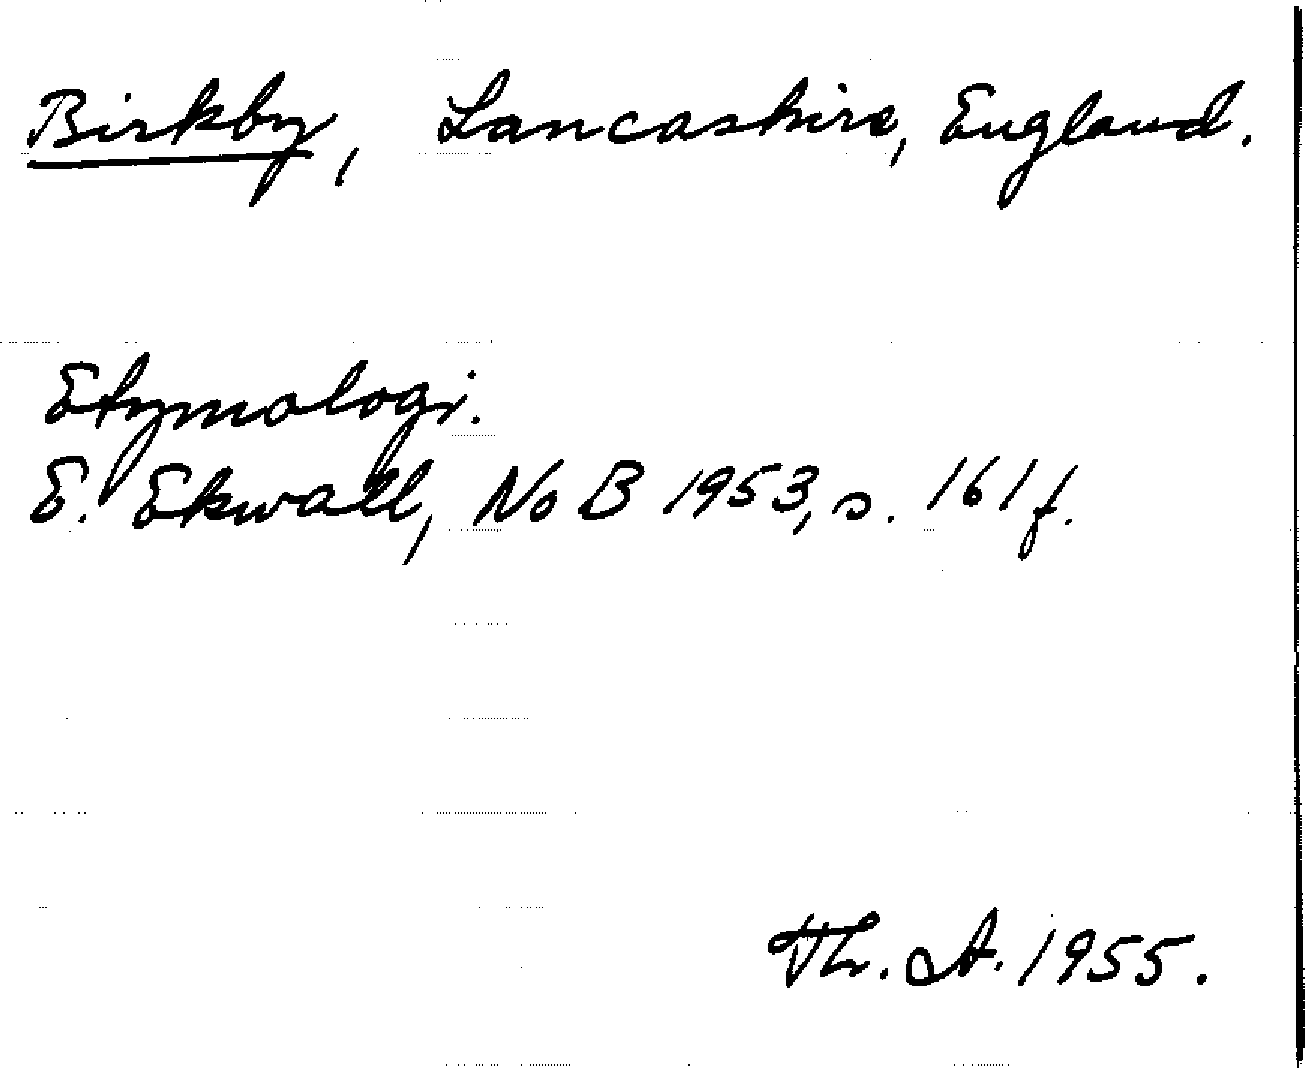 Birkby, Lancashire, England.
Etymologi.
E. Ekwall, NoB 1953, s. 161 f.
Th. A. 1955.